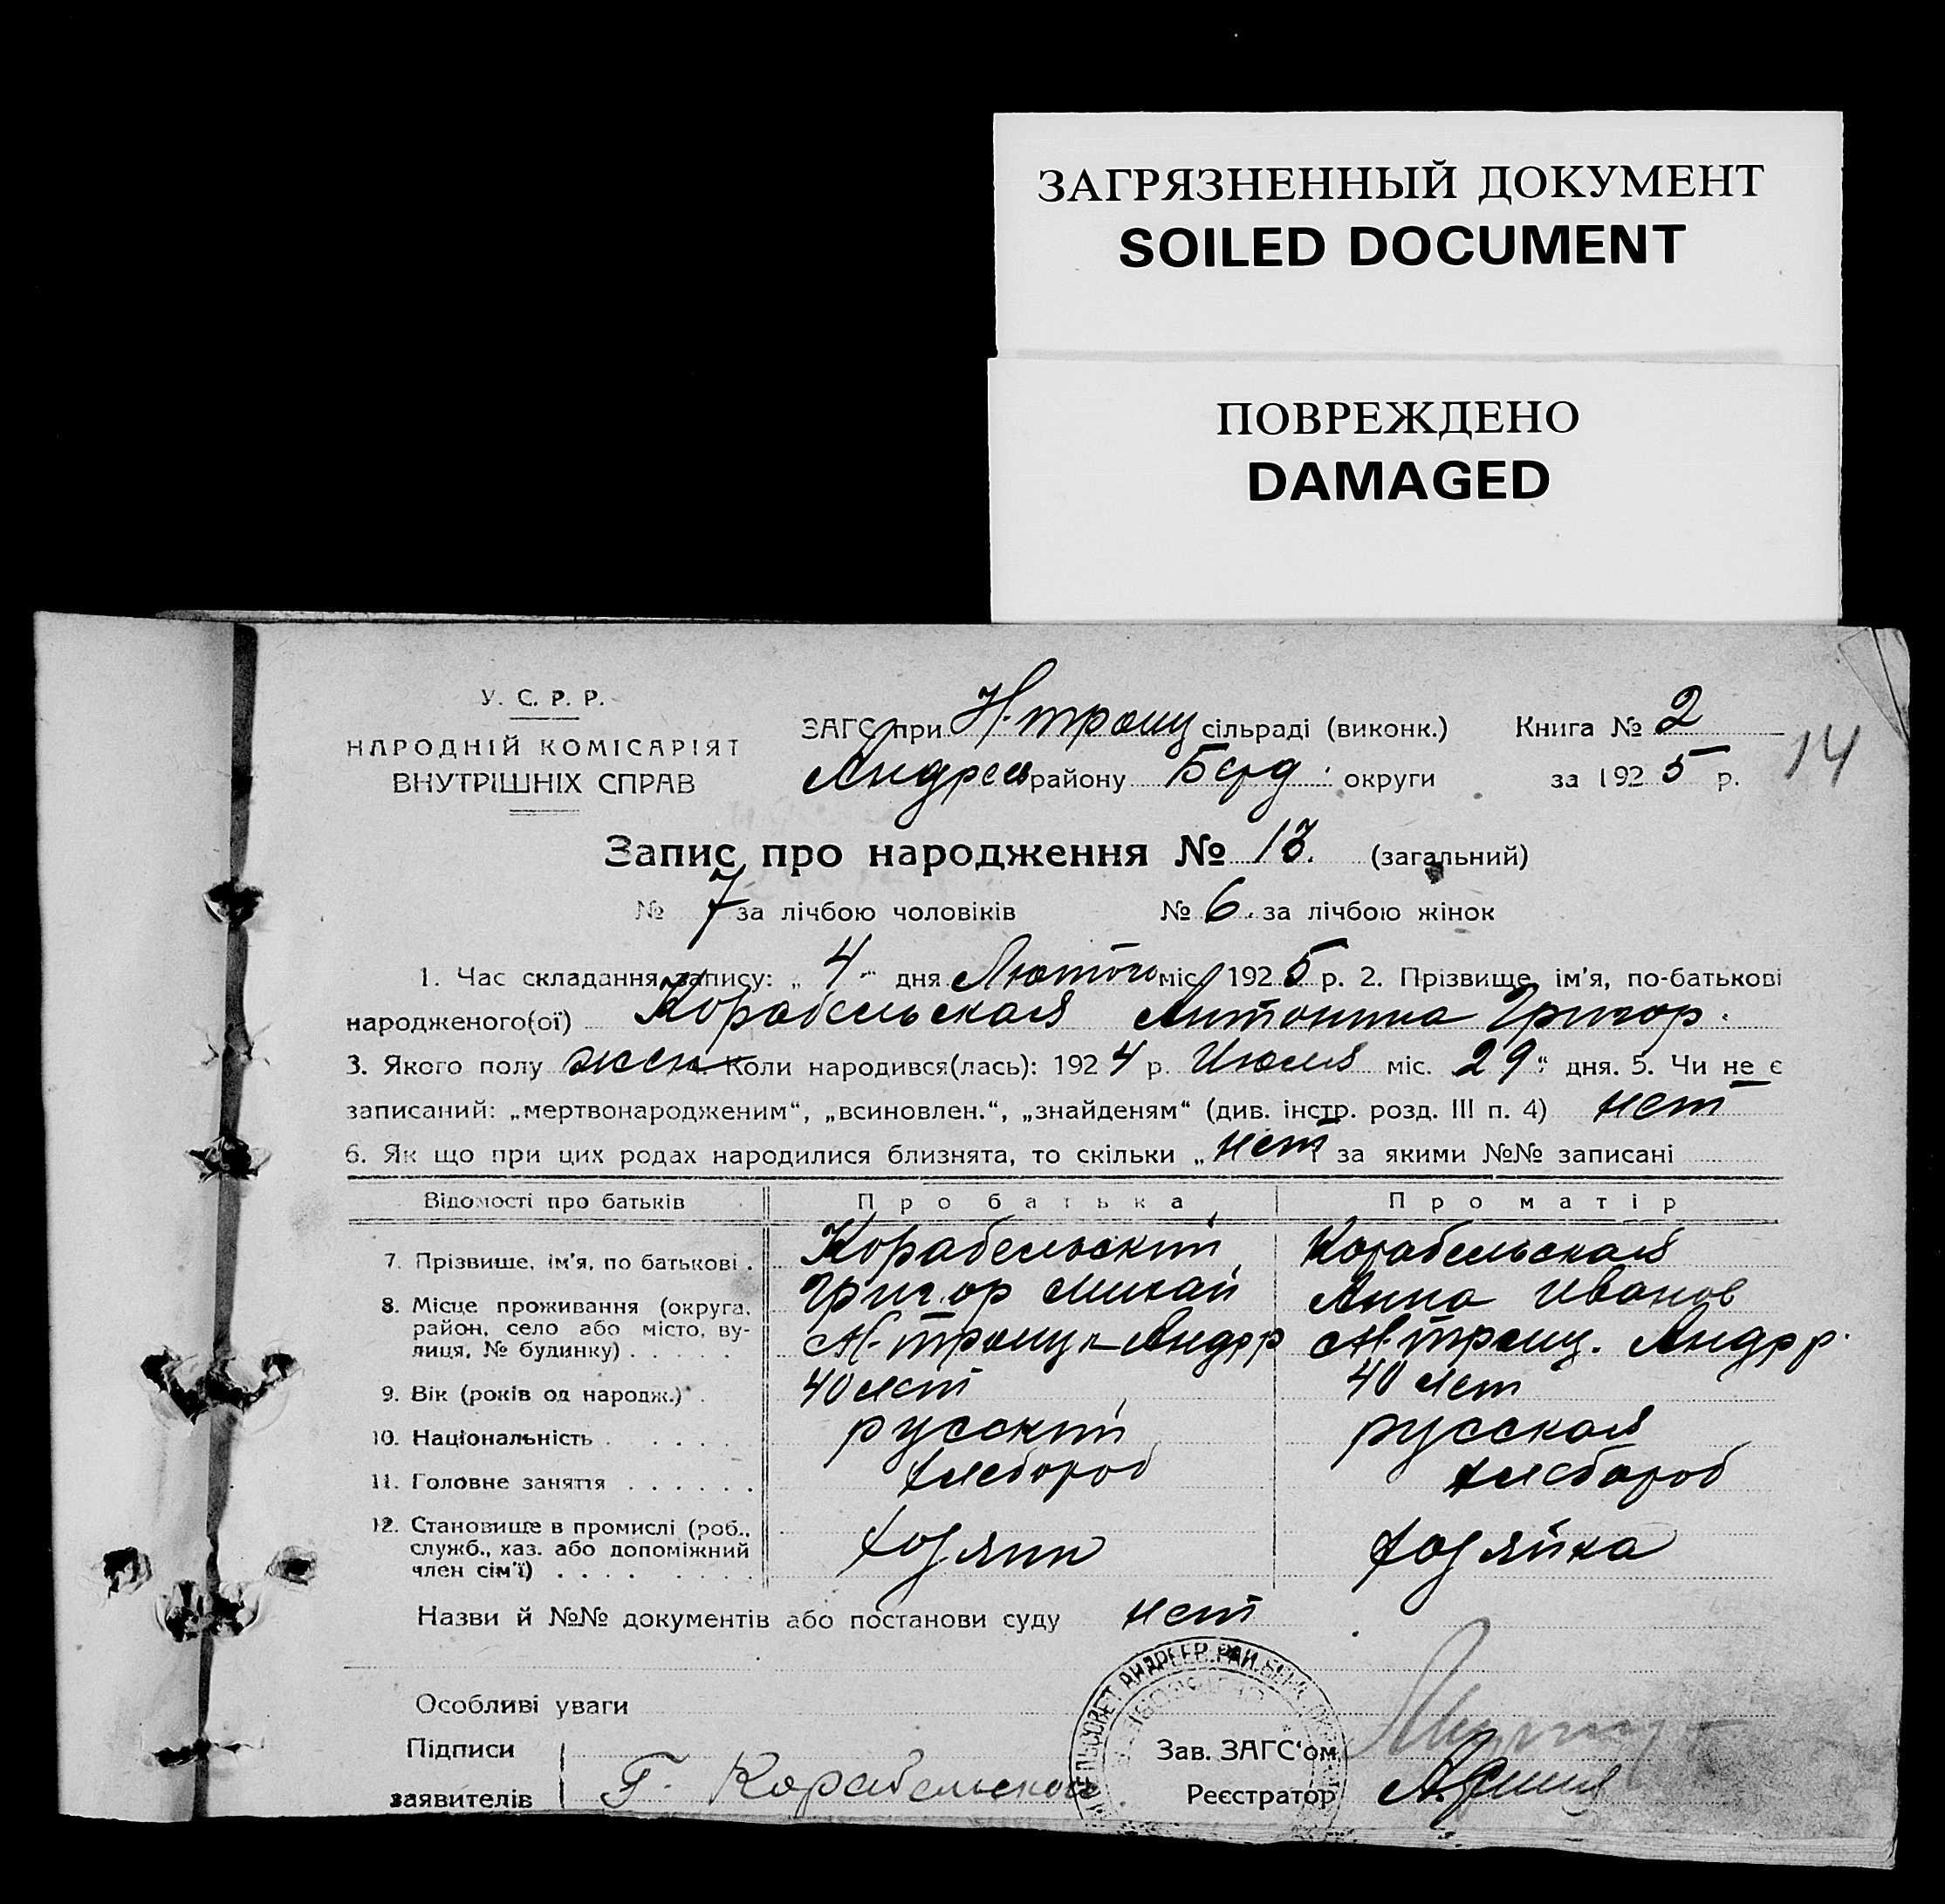 ЗАГРЯЗНЕННЫЙ ДОКУМЕНТ
SOILED DOCUMENT
ПОВРЕЖДЕНО
DAMAGED
У. С. Р. Р.
НАРОДНІЙ КОМІСАРІЯТ
ВНУТРІШНІХ СПРАВ
ЗАГС при Н-троиц сільраді (виконк.) Книга № 2
Андреев району Берд. округи за 1925 р. 14
Запис про народження № 13. (загальний)
№ 7 за лічбою чоловіків № 6. за лічбою жінок
1. Час складання запису: „ 4 " дня Лютого міс. 1925 р. 2. Прізвище, ім'я, по-батькові
народженого(ої) Корабельская Антонина Григор.
3. Якого полу жен 4. Коли народився(лась): 1924 р. Июля міс. 29 " дня. 5. Чи не є
записаний: „мертвонародженим“, „всиновлен.“, „знайденям“ (див. інстр. розд. III п. 4) нет
6. Як що при цих родах народилися близнята, то скільки „ нет за якими №№ записані
Відомості про батьків Про батька Про матір
7. Прізвише, ім'я, по батькові . Корабельский Корабельская
Григор Михай Анна Иванов
8. Місце проживання (округа, район, село або місто, ву-
лиця, № будинку) . . . . . Н-троицк-Андр р Н-троиц. Андр р.
9. Вік (років од народж.) . 40 лет 40 лет
10. Національність . . . . . русский русская
11. Головне заняття . . . . . . хлебороб хлебороб
12. Становище в промислі (роб.,
служб., хаз. або допоміжний
член сім'ї) . . . . . . . . хозяин хозяйка
Назви й №№ документів або постанови суду нет
Особливі уваги
Підписи
заявителів Г. Корабельской
Зав. ЗАГС'ом
Реєстратор